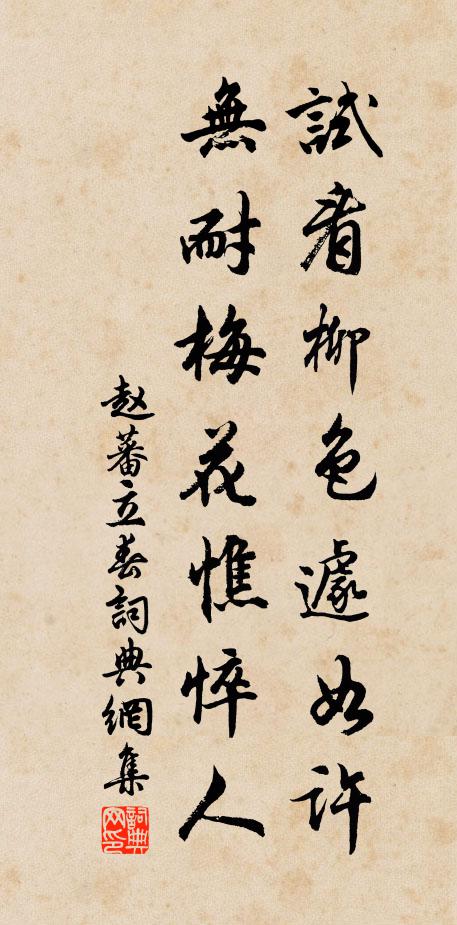 試看柳色遽如許
無耐梅花憔悴人
赵蕃立春詞典網集
詞典网印